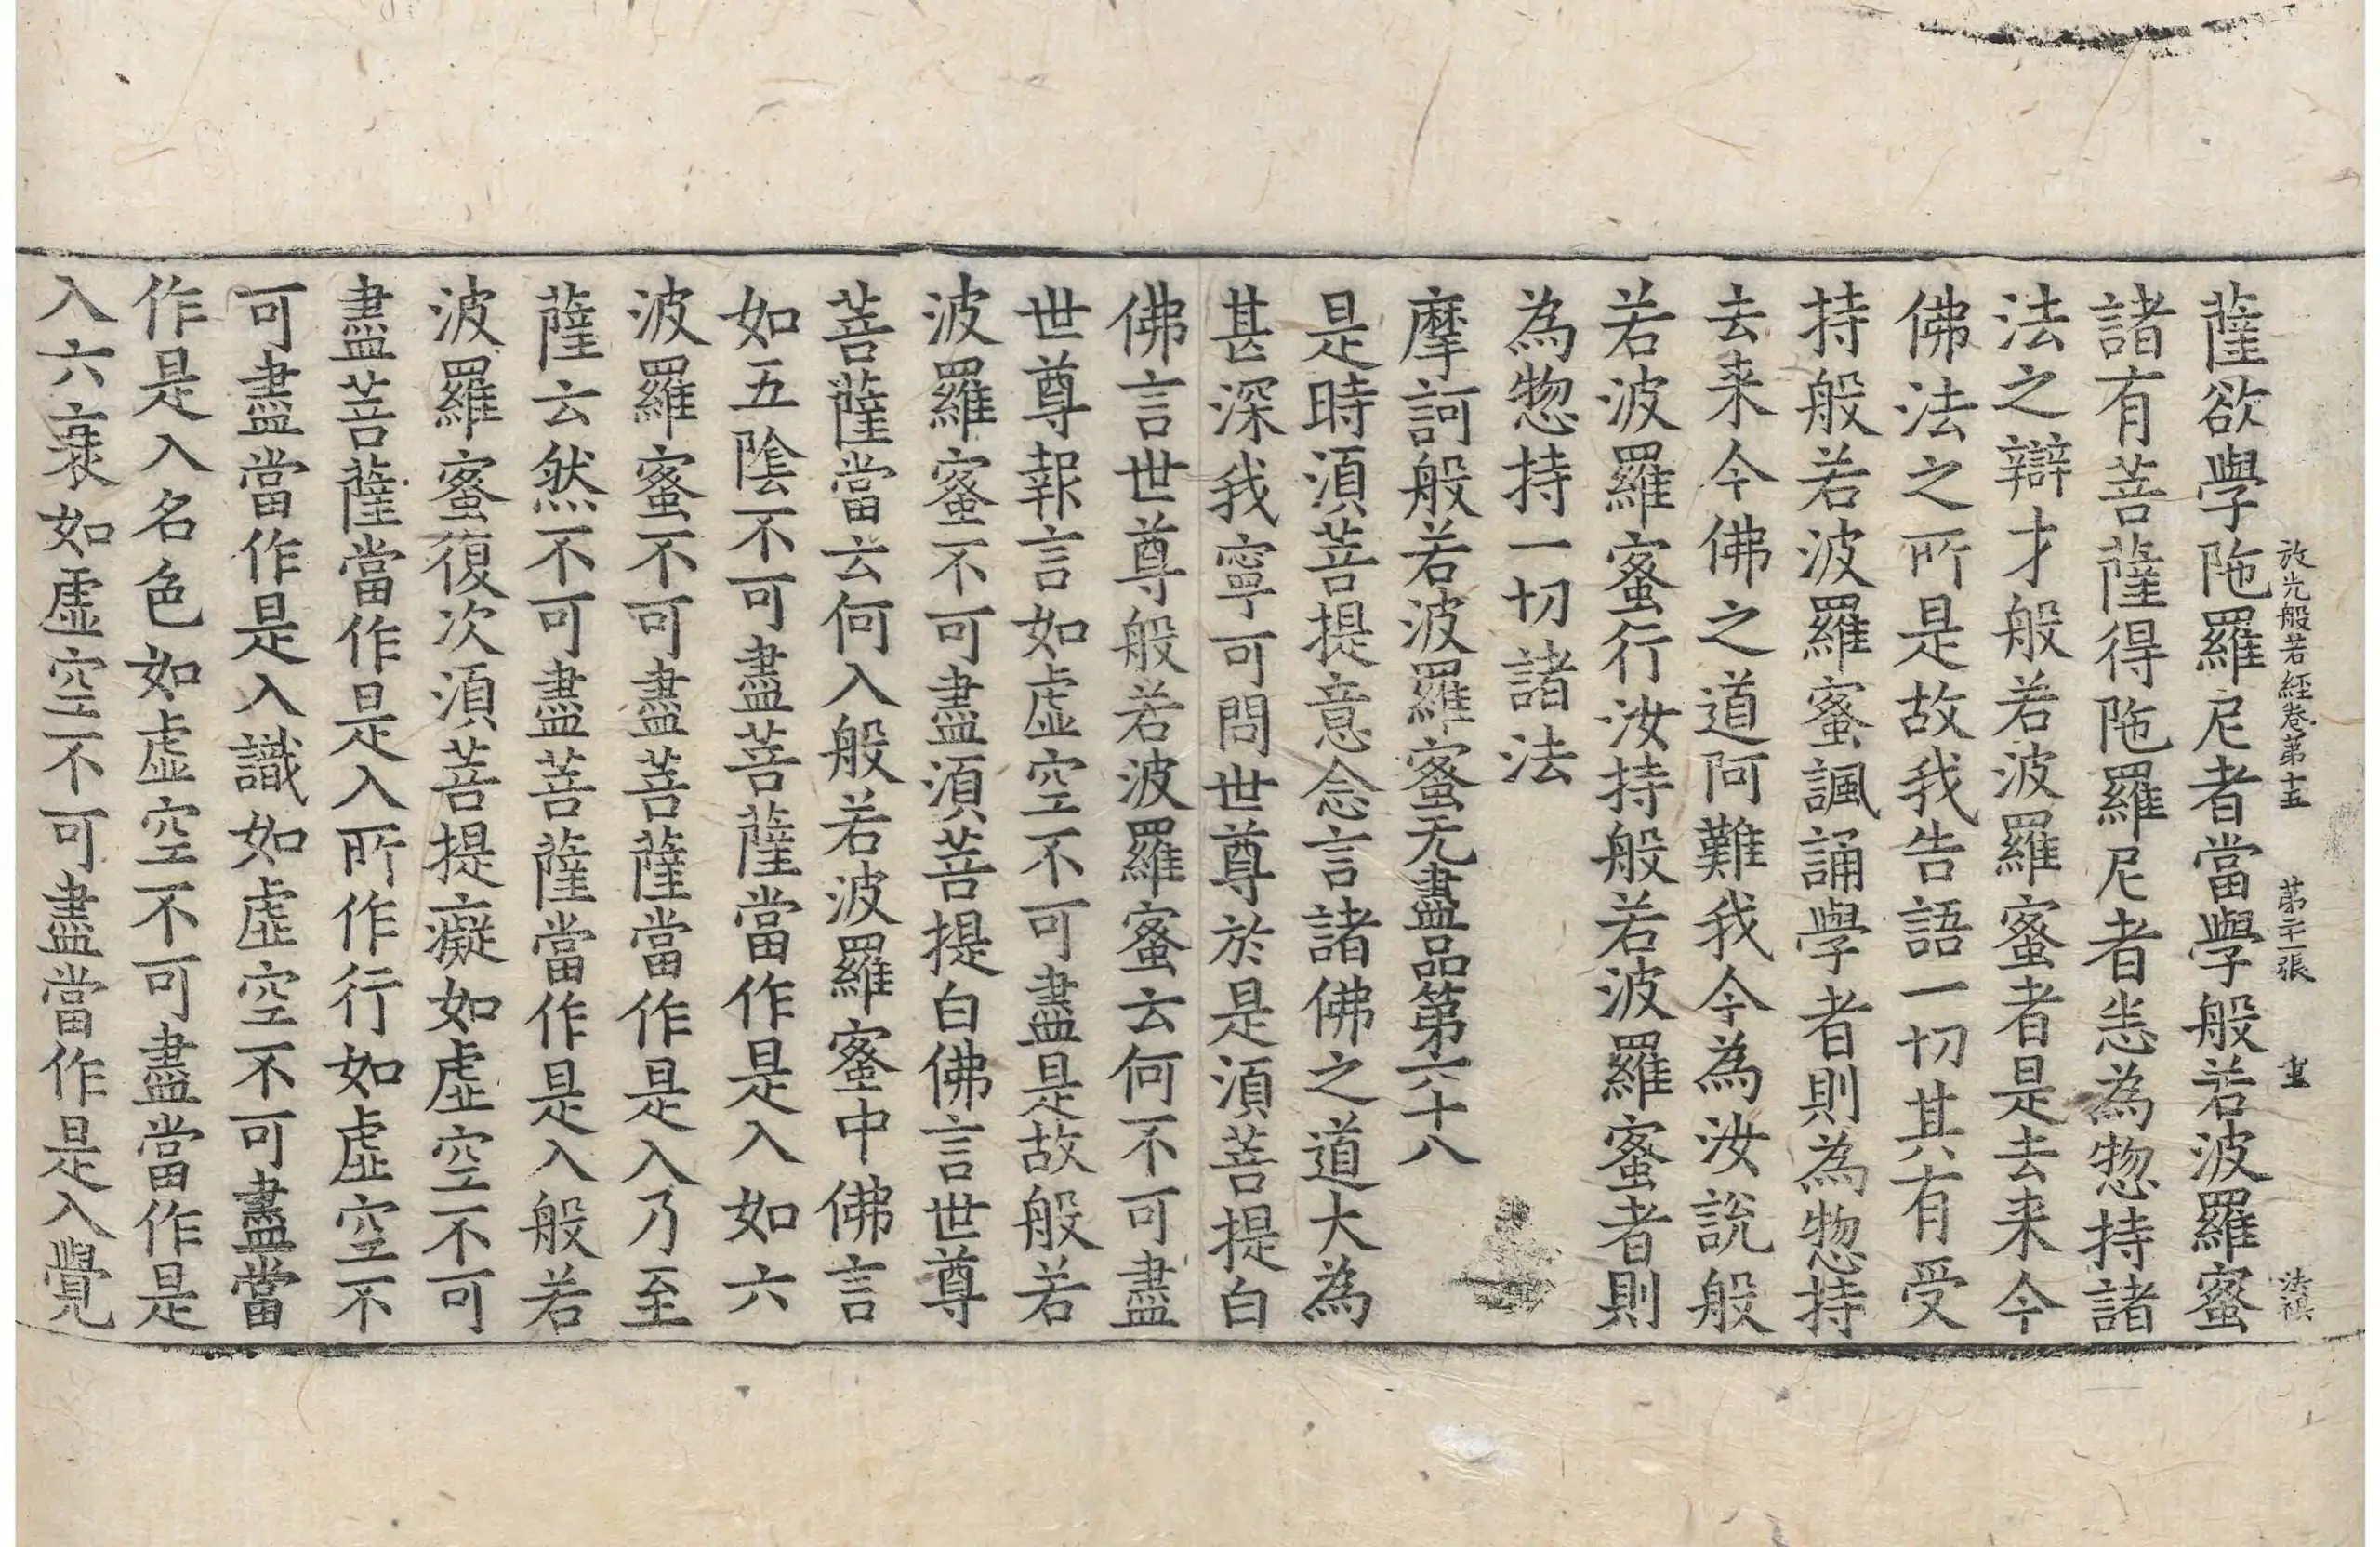 放光般若經卷第十五 第二十一張 畫 法禛
薩欲學陁羅尼者當學般若波羅蜜
諸有菩薩得陁羅尼者恙為惣持諸
法之辯才般若波羅蜜者是去来今
佛法之所是故我告語一切其有受
持般若波羅蜜諷誦學者則為惣持
去来今佛之道阿難我今為汝說般
若波羅蜜行汝持般若波羅蜜者則
為惣持一切諸法
摩訶般若波羅蜜无盡品第六十八
是時湏菩提意念言諸佛之道大為
甚深我寧可問世尊於是湏菩提白
佛言世尊般若波羅蜜云何不可盡
世尊報言如虛空不可盡是故般若
波羅蜜不可盡湏菩提白佛言世尊
菩薩當云何入般若波羅蜜中佛言
如五陰不可盡菩薩當作是入如六
波羅蜜不可盡菩薩當作是入乃至
薩云然不可盡菩薩當作是入般若
波羅蜜復次湏菩提癡如虛空不可
盡菩薩當作是入所作行如虛空不
可盡當作是入識如虛空不可盡當
作是入名色如虛空不可盡當作是
入六衰如虛空不可盡當作是入覺